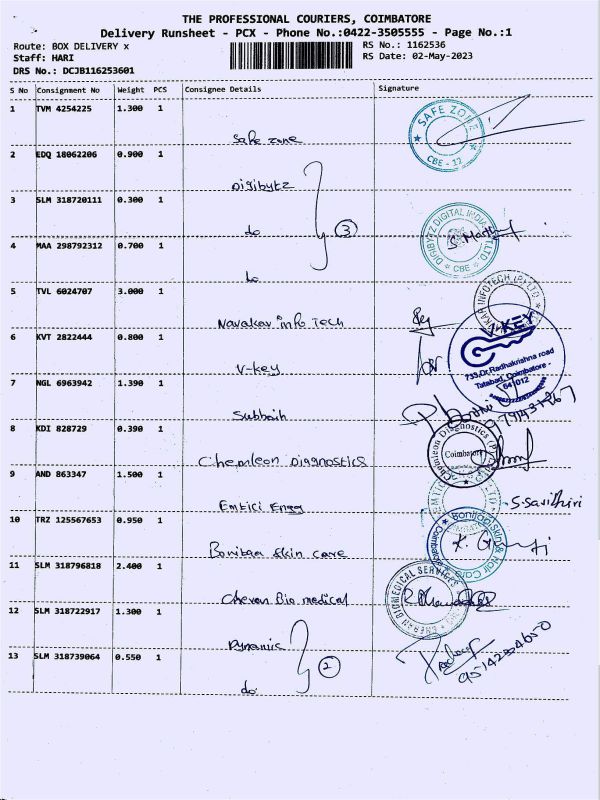 THE PROFESSIONAL COURIERS, COIMBATORE
Delivery Runsheet - PCX - Phone No.:0422-3505555 - Page No.:1
Route: BOX DELIVERY x
RS No.: 1162536
Staff: HARI
RS Date: 02-May-2023
DRS No.: DCJB116253601
S No Consignment No Weight PCS Consignee Details Signature
1 TVM 4254225 1.300 1
Safe zone
SAFE ZONE
CBE - 12
2 EDQ 18062206 0.900 1
Digibytz
3 SLM 318720111 0.300 1
do
3
DIGIBYTZ DIGITAL INDIA PVT LTD
CBE
4 MAA 298792312 0.700 1
do
5 TVL 6024707 3.000 1
Navakar info Tech
INFOTECH (P) LTD
6 KVT 2822444 0.800 1
V-key
V-KEY
733, Dr. Radhakrishna road
Tatabad, Coimbatore -
641012
7 NGL 6963942 1.390 1
Subbaih
8 KDI 828729 0.390 1
Chemleon Diagnostics
Chemleon Diagnostics
Coimbatore
9 AND 863347 1.500 1
Emtici Engg
S. Savithiri
10 TRZ 125567653 0.950 1
Bonitaa Skin care
Bonitaa Skin & Hair Care
11 SLM 318796818 2.400 1
Cheran Bio medical
CHERAN BIOMEDICAL SERVICES
12 SLM 318722917 1.300 1
Dynamic
13 SLM 318739064 0.550 1
do
2